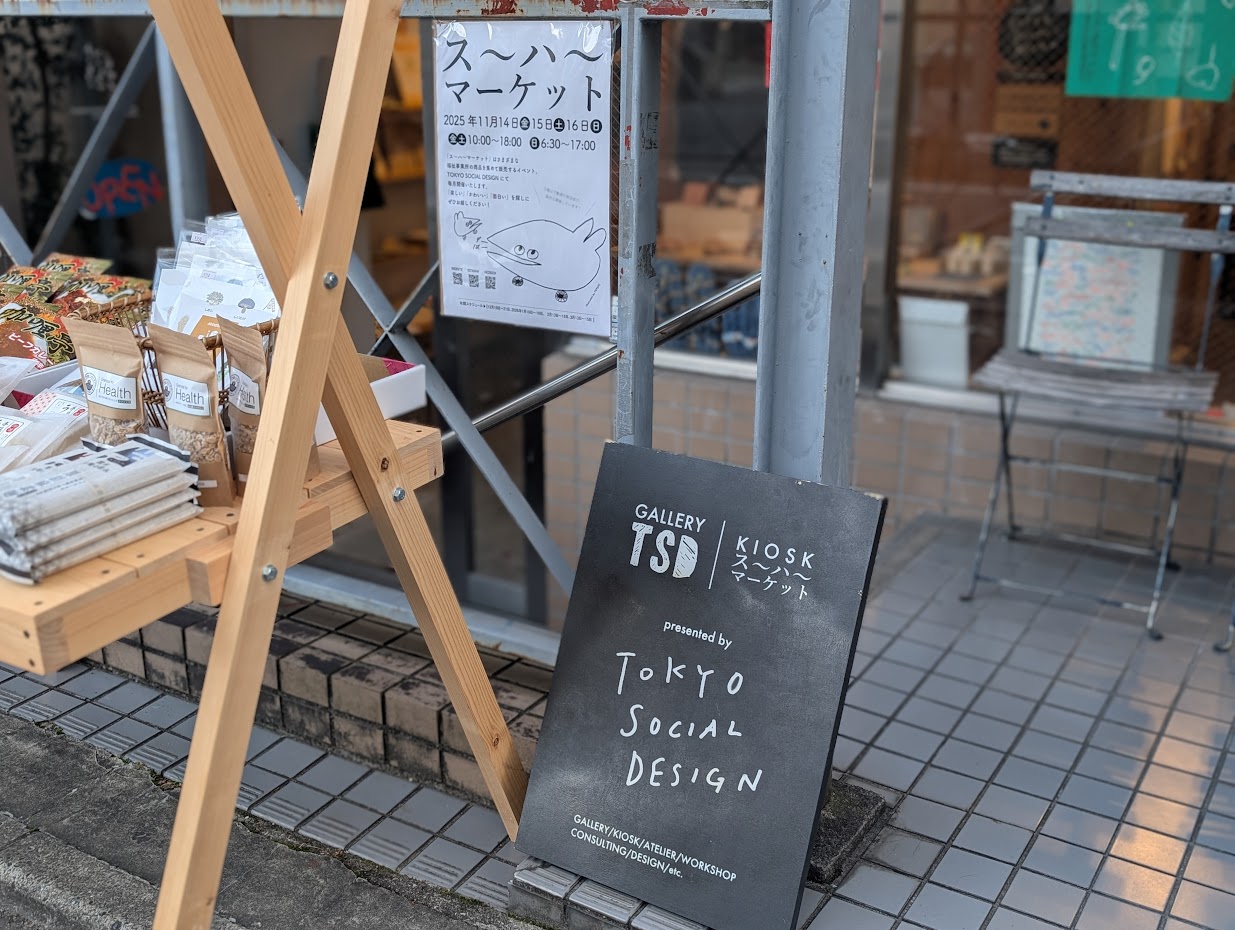 ス〜ハ〜
マーケット
2025年11月14日金15日土16日日
金土10:00〜18:00 日6:30〜17:00
「スーハーマーケット」はさまざまな
福祉事業所の商品を集めて販売するイベント。
TOKYO SOCIAL DESIGNにて
毎月開催いたします。
「美しい」「かわいい」「面白い」を探しに
ぜひお越しください!
OPEN
Health
Health
Health
GALLERY
TSD
KIOSK
ス〜ハ〜
マーケット
presented by
TOKYO
SOCIAL
DESIGN
GALLERY/KIOSK/ATELIER/WORKSHOP
CONSULTING/DESIGN/etc.